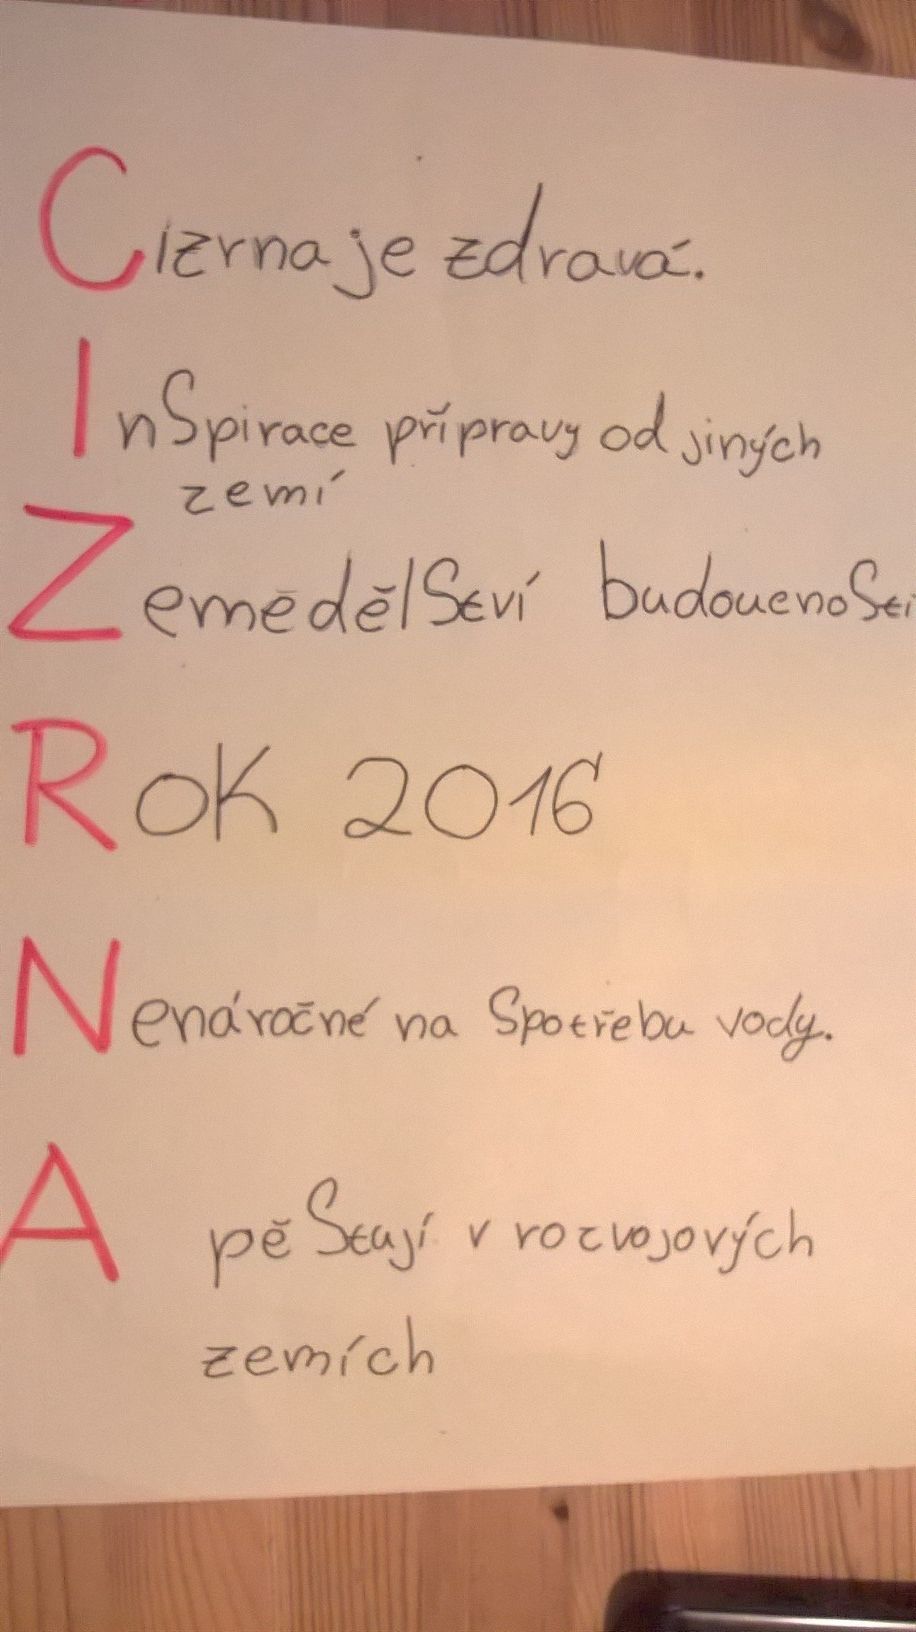 Cizrna je zdravá.
Inspirace přípravy od jiných
zemí
Zemědělství budoucnosti
Rok 2016
Nenáročné na spotřebu vody.
A pěstují v rozvojových
zemích